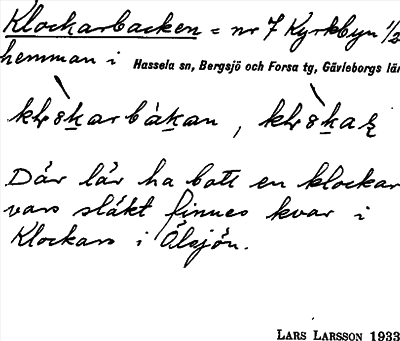 Klockarbacken = nr 7 Kyrkbyn 1/2
hemman i Hassela sn, Bergsjö och Forsa tg, Gävleborgs län
Där lär ha bott en klockar
vars släkt finnes kvar i
Klockars i Älsjön.
LARS LARSSON 1933